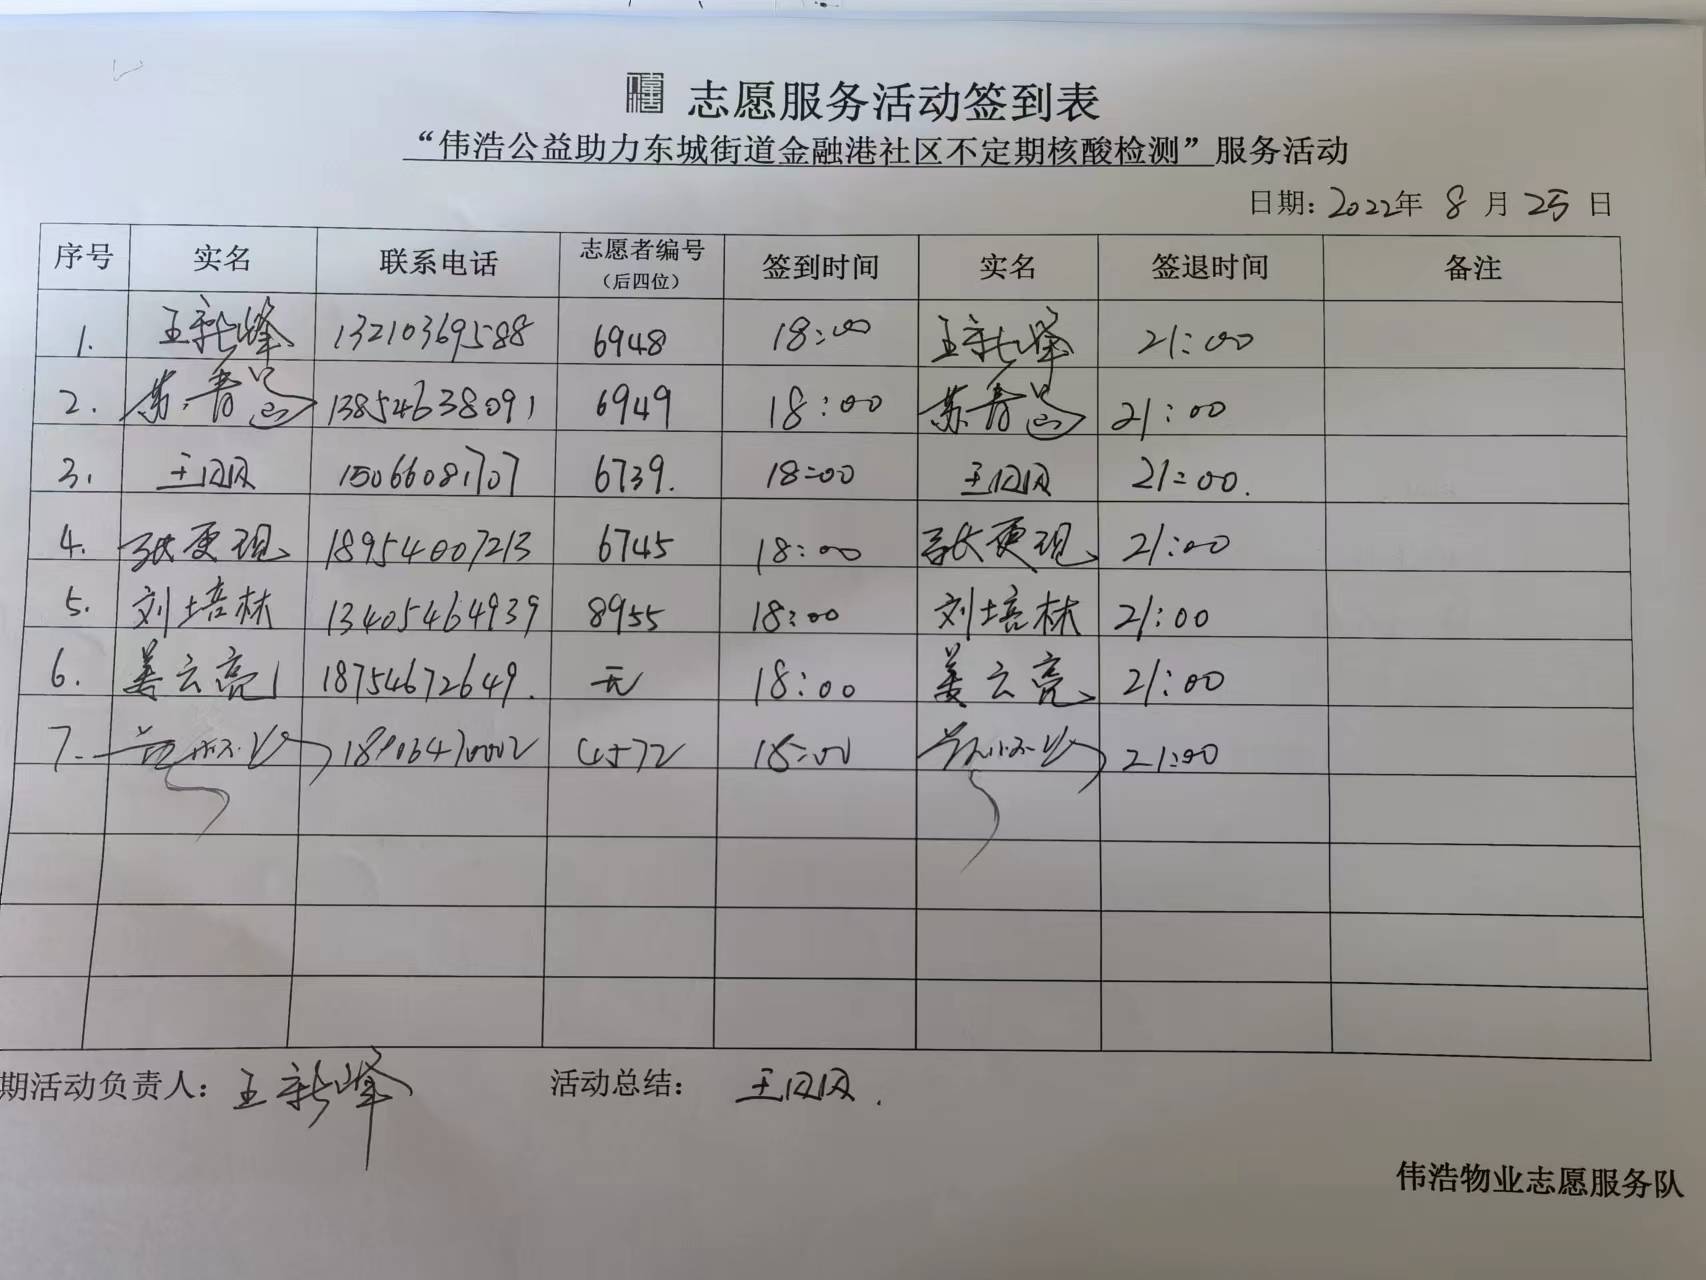 志愿服务活动签到表
“伟浩公益助力东城街道金融港社区不定期核酸检测”服务活动
日期：2022年 8 月 25 日
序号 实名 联系电话 志愿者编号（后四位） 签到时间 实名 签退时间 备注
1. 王新峰 13210369588 6948 18:00 王新峰 21:00
2. 13854638091 6949 18:00 21:00
3. 15066081707 6739. 18:00 21:00.
4. 张更现 18954007213 6745 18:00 张更现 21:00
5. 刘培林 13405464939 8955 18:00 刘培林 21:00
6. 姜云亮 18754672649. 无 18:00 姜云亮 21:00
7. 4572 18:00 21:00
期活动负责人：王新峰 活动总结：
伟浩物业志愿服务队